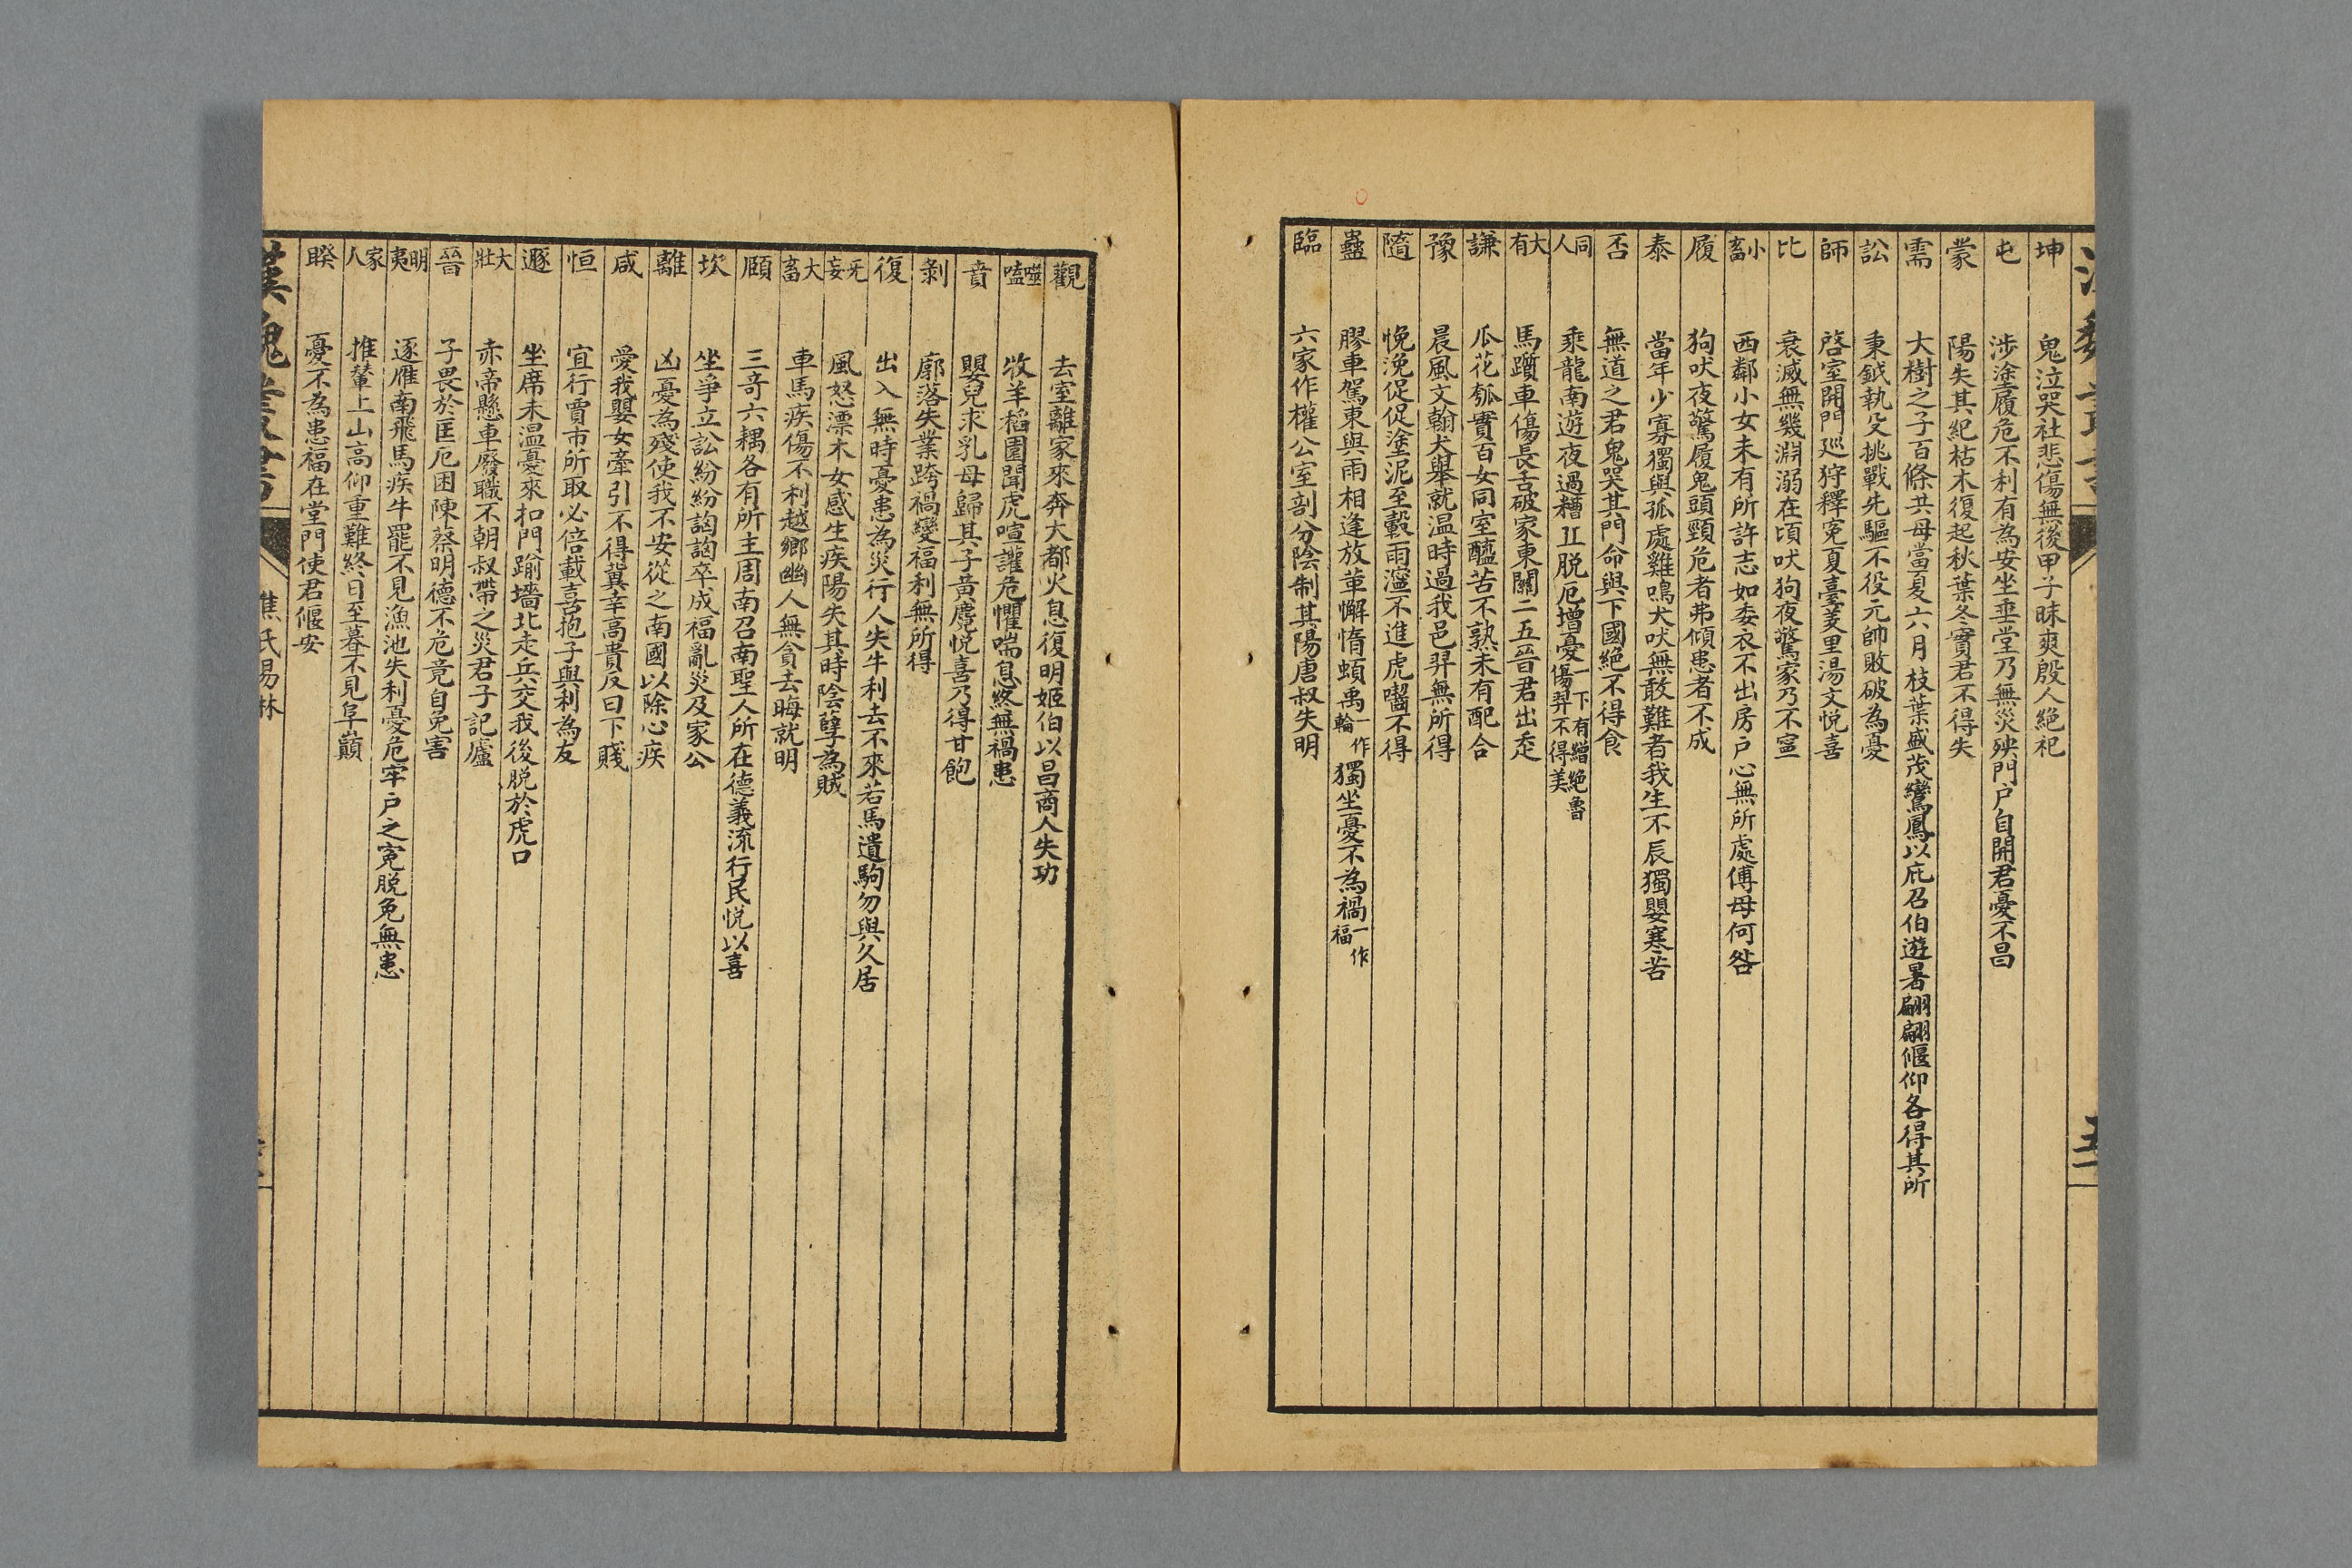 坤 鬼泣哭社悲傷無後甲子昧爽殷人絶祀
屯 涉塗履危不利有為安坐垂堂乃無災殃門户自開君憂不昌
蒙 陽失其紀枯木復起秋葉冬實君不得失
需 大樹之子百條共母當夏六月枝葉盛茂鸞鳳以庇召伯遊暑翩翩偃仰各得其所
訟 秉鉞執殳挑戰先驅不役元帥敗破為憂
師 啓室開門巡狩釋寃夏臺羑里湯文悦喜
比 衰滅無幾淵溺在頃吠狗夜驚家乃不寧
小畜 西鄰小女未有所許志如委衣不出房户心無所處傅母何咎
履 狗吠夜驚履鬼頭頸危者弗傾患者不成
泰 當年少寡獨與孤處雞鳴犬吠無敢難者我生不辰獨嬰寒苦
否 無道之君鬼哭其門命與下國絶不得食
同人 乘龍南遊夜過糟丘脱厄增憂一下有繒絶魯傷羿不得美
大有 馬躓車傷長舌破家東關二五晉君出走
謙 瓜花瓠實百女同室醯苦不熟未有配合
豫 晨風文翰大舉就温時過我邑羿無所得
隨 悗浼促促塗泥至轂雨濘不進虎嚙不得
蠱 膠車駕東與雨相逢放革懈惰頓禹一作輪獨坐憂不為禍一作福
臨 六家作權公室剖分陰制其陽唐叔失明
觀 去室離家來奔大都火息復明姬伯以昌商人失功
噬嗑 牧羊稻園聞虎喧讙危懼喘息終無禍患
賁 嬰兒求乳母歸其子黃麑悦喜乃得甘飽
剝 廓落失業跨禍變福利無所得
復 出入無時憂患為災行人失牛利去不來若馬遺駒勿與久居
无妄 風怒漂木女感生疾陽失其時陰孽為賊
大畜 車馬疾傷不利越鄉幽人無貪去晦就明
頤 三奇六耦各有所主周南召南聖人所在德義流行民悦以喜
坎 坐爭立訟紛紛訩訩卒成福亂災及家公
離 凶憂為殘使我不安從之南國以除心疾
咸 愛我嬰女牽引不得冀幸高貴反曰下賤
恒 宜行賈市所取必倍載喜抱子與利為友
遯 坐席未温憂來扣門踰墻北走兵交我後脱於虎口
大壯 赤帝懸車廢職不朝叔帶之災君子記廬
晉 子畏於匡厄困陳蔡明德不危竟自免害
明夷 逐雁南飛馬疾牛罷不見漁池失利憂危牢户之寃脱免無患
家人 推輦上山高仰重難終日至暮不見阜巔
睽 憂不為患福在堂門使君偃安
漢魏叢書 焦氏易林